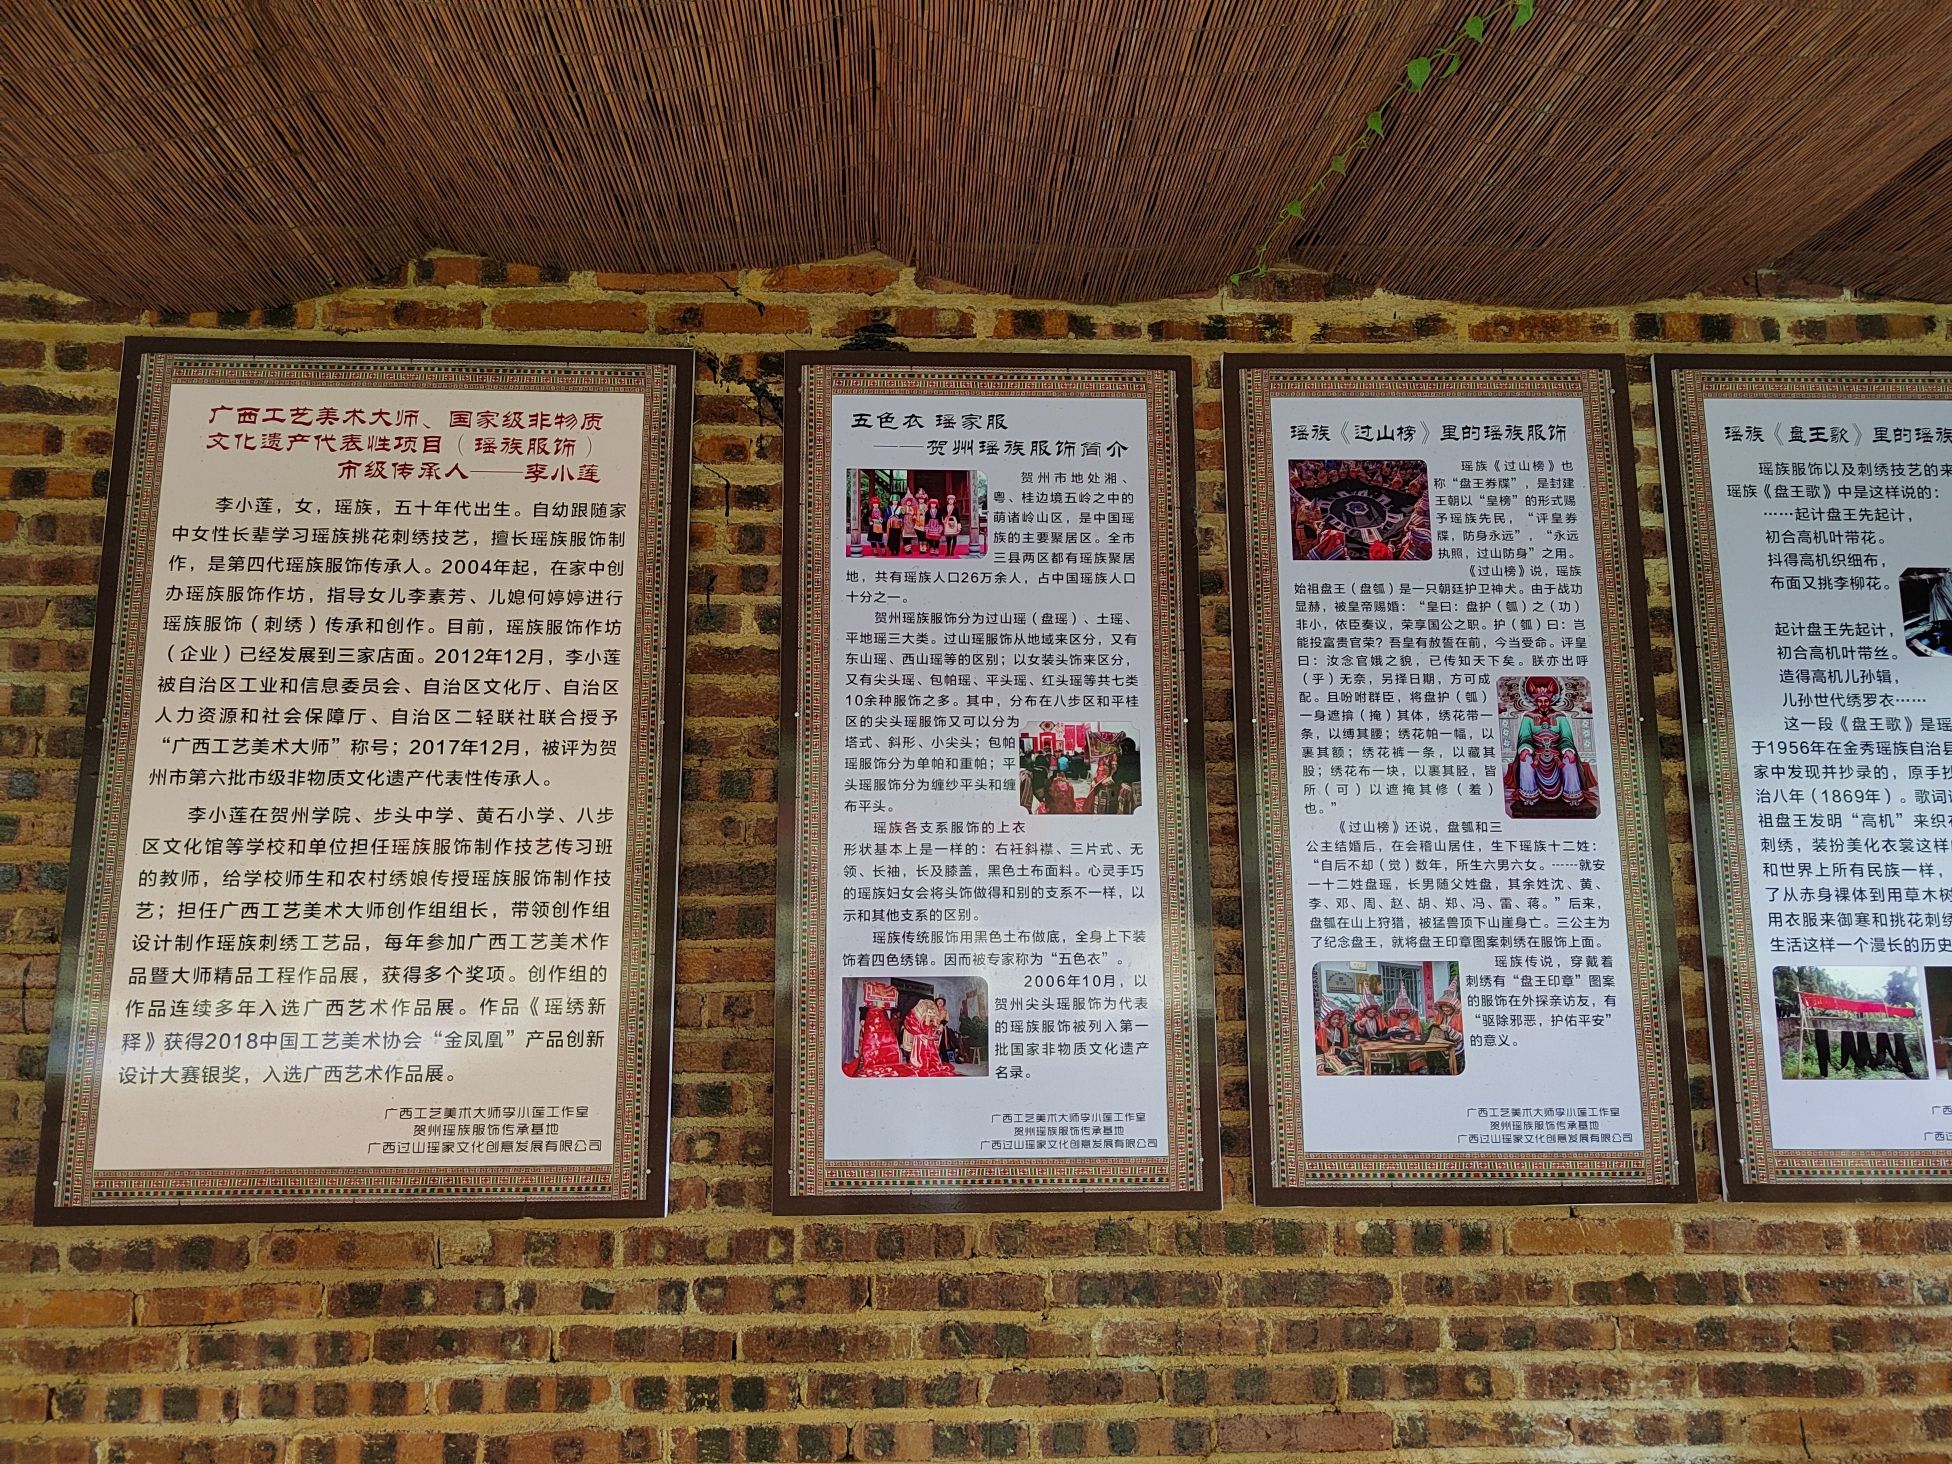 广西工艺美术大师、国家级非物质
文化遗产代表性项目（瑶族服饰）
市级传承人——李小莲
李小莲，女，瑶族，五十年代出生。自幼跟随家
中女性长辈学习瑶族挑花刺绣技艺，擅长瑶族服饰制
作，是第四代瑶族服饰传承人。2004年起，在家中创
办瑶族服饰作坊，指导女儿李素芳、儿媳何婷婷进行
瑶族服饰（刺绣）传承和创作。目前，瑶族服饰作坊
（企业）已经发展到三家店面。2012年12月，李小莲
被自治区工业和信息委员会、自治区文化厅、自治区
人力资源和社会保障厅、自治区二轻联社联合授予
“广西工艺美术大师”称号；2017年12月，被评为贺
州市第六批市级非物质文化遗产代表性传承人。
李小莲在贺州学院、步头中学、黄石小学、八步
区文化馆等学校和单位担任瑶族服饰制作技艺传习班
的教师，给学校师生和农村绣娘传授瑶族服饰制作技
艺；担任广西工艺美术大师创作组组长，带领创作组
设计制作瑶族刺绣工艺品，每年参加广西工艺美术作
品暨大师精品工程作品展，获得多个奖项。创作组的
作品连续多年入选广西艺术作品展。作品《瑶绣新
释》获得2018中国工艺美术协会“金凤凰”产品创新
设计大赛银奖，入选广西艺术作品展。
广西工艺美术大师李小莲工作室
贺州瑶族服饰传承基地
广西过山瑶家文化创意发展有限公司
五色衣 瑶家服
——贺州瑶族服饰简介
贺州市地处湘、
粤、桂边境五岭之中的
萌诸岭山区，是中国瑶
族的主要聚居区。全市
三县两区都有瑶族聚居
地，共有瑶族人口26万余人，占中国瑶族人口
十分之一。
贺州瑶族服饰分为过山瑶（盘瑶）、土瑶、
平地瑶三大类。过山瑶服饰从地域来区分，又有
东山瑶、西山瑶等的区别；以女装头饰来区分，
又有尖头瑶、包帕瑶、平头瑶、红头瑶等共七类
10余种服饰之多。其中，分布在八步区和平桂
区的尖头瑶服饰又可以分为
塔式、斜形、小尖头；包帕
瑶服饰分为单帕和重帕；平
头瑶服饰分为缠纱平头和缠
布平头。
瑶族各支系服饰的上衣
形状基本上是一样的：右衽斜襟、三片式、无
领、长袖，长及膝盖，黑色土布面料。心灵手巧
的瑶族妇女会将头饰做得和别的支系不一样，以
示和其他支系的区别。
瑶族传统服饰用黑色土布做底，全身上下装
饰着四色绣锦。因而被专家称为“五色衣”。
2006年10月，以
贺州尖头瑶服饰为代表
的瑶族服饰被列入第一
批国家非物质文化遗产
名录。
广西工艺美术大师李小莲工作室
贺州瑶族服饰传承基地
广西过山瑶家文化创意发展有限公司
瑶族《过山榜》里的瑶族服饰
瑶族《过山榜》也
称“盘王券牒”，是封建
王朝以“皇榜”的形式赐
予瑶族先民，“评皇券
牒，防身永远”，“永远
执照，过山防身”之用。
《过山榜》说，瑶族
始祖盘王（盘瓠）是一只朝廷护卫神犬。由于战功
显赫，被皇帝赐婚：“皇曰：盘护（瓠）之（功）
非小，依臣奏议，荣享国公之职。护（瓠）曰：岂
能投富贵官荣？吾皇有赦誓在前，今当受命。评皇
曰：汝念官娥之貌，已传知天下矣。朕亦出呼
（乎）无奈，另择日期，方可成
配。且吩咐群臣，将盘护（瓠）
一身遮揜（掩）其体，绣花带一
条，以缚其腰；绣花帕一幅，以
裹其额；绣花裤一条，以藏其
股；绣花布一块，以裹其胫，皆
所（可）以遮掩其修（羞）
也。”
《过山榜》还说，盘瓠和三
公主结婚后，在会稽山居住，生下瑶族十二姓：
“自后不却（觉）数年，所生六男六女。……就安
一十二姓盘瑶，长男随父姓盘，其余姓沈、黄、
李、邓、周、赵、胡、郑、冯、雷、蒋。”后来，
盘瓠在山上狩猎，被猛兽顶下山崖身亡。三公主为
了纪念盘王，就将盘王印章图案刺绣在服饰上面。
瑶族传说，穿戴着
刺绣有“盘王印章”图案
的服饰在外探亲访友，有
“驱除邪恶，护佑平安”
的意义。
广西工艺美术大师李小莲工作室
贺州瑶族服饰传承基地
广西过山瑶家文化创意发展有限公司
瑶族《盘王歌》里的瑶族
瑶族服饰以及刺绣技艺的来
瑶族《盘王歌》中是这样说的：
……起计盘王先起计，
初合高机叶带花。
抖得高机织细布，
布面又挑李柳花。
起计盘王先起计，
初合高机叶带丝。
造得高机儿孙辑，
儿孙世代绣罗衣……
这一段《盘王歌》是瑶
于1956年在金秀瑶族自治县
家中发现并抄录的，原手抄
治八年（1869年）。歌词
祖盘王发明“高机”来织布
刺绣，装扮美化衣裳这样
和世界上所有民族一样，
了从赤身裸体到用草木树
用衣服来御寒和挑花刺绣
生活这样一个漫长的历史